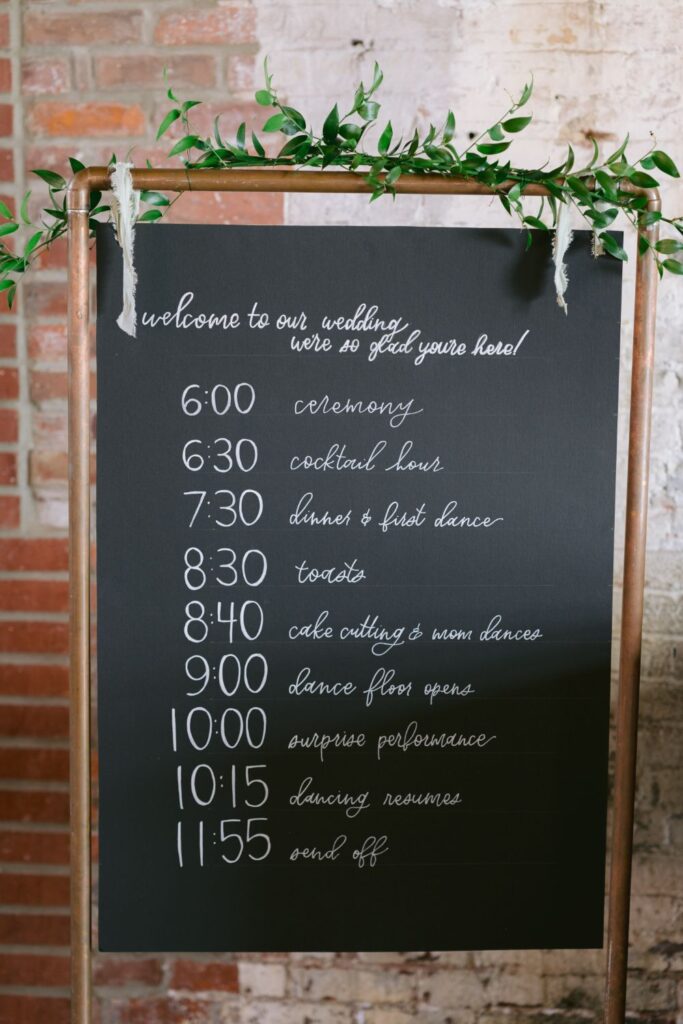 welcome to our wedding
we're so glad you're here!
6:00 ceremony
6:30 cocktail hour
7:30 dinner & first dance
8:30 toasts
8:40 cake cutting & mom dances
9:00 dance floor opens
10:00 surprise performance
10:15 dancing resumes
11:55 send off